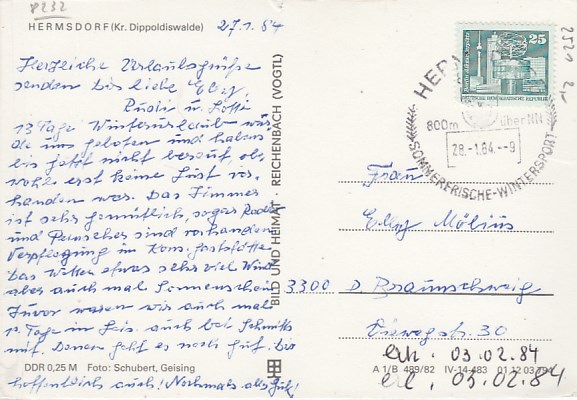 8232
HERMSDORF (Kr. Dippoldiswalde)
27.1.84
Herzliche Urlaubsgrüße
senden Dir liebe Elly,
Rudi u. Lotti
13 Tage Winterurlaub
die uns gefallen und haben
bis jetzt nicht bereut, ob-
wohl erst keine Lust vor-
handen war. Das Zimmer
ist sehr gemütlich, sogar Radio
und Fernseher sind vorhanden
Verpflegung im Kons. Gaststätte
Das Wetter etwas sehr viel Wind
aber auch mal Sonnenschein
Zuvor waren wir auch mal
Tage in auch bei Schmidts
mit. Denen geht es noch gut. Dir
hoffentlich auch! Nochmals alles Gute!
DDR 0,25 M Foto: Schubert, Geising
BILD UND HEIMAT · REICHENBACH (VOGTL)
25
DEUTSCHE DEMOKRATISCHE REPUBLIK
HER
800m über NN
28.-1.84.--9
SOMMERFRISCHE-WINTERSPORT
2529
Frau
Elly Möbius
3300 D. Braunschweig
30
erh. 03.02.84
erl. 03.02.84
A 1/B 489/82 IV-14-483 01 12 03